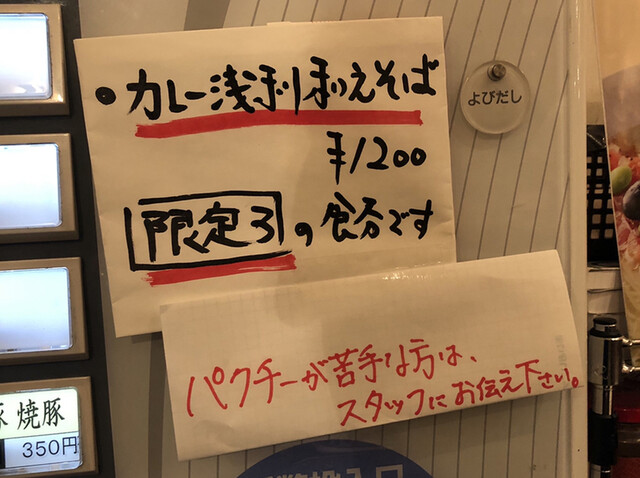 ・カレー浅利和えそば
¥1200
限定3の食券です
よびだし
パクチーが苦手な方は、
スタッフにお伝え下さい。
焼豚
350円